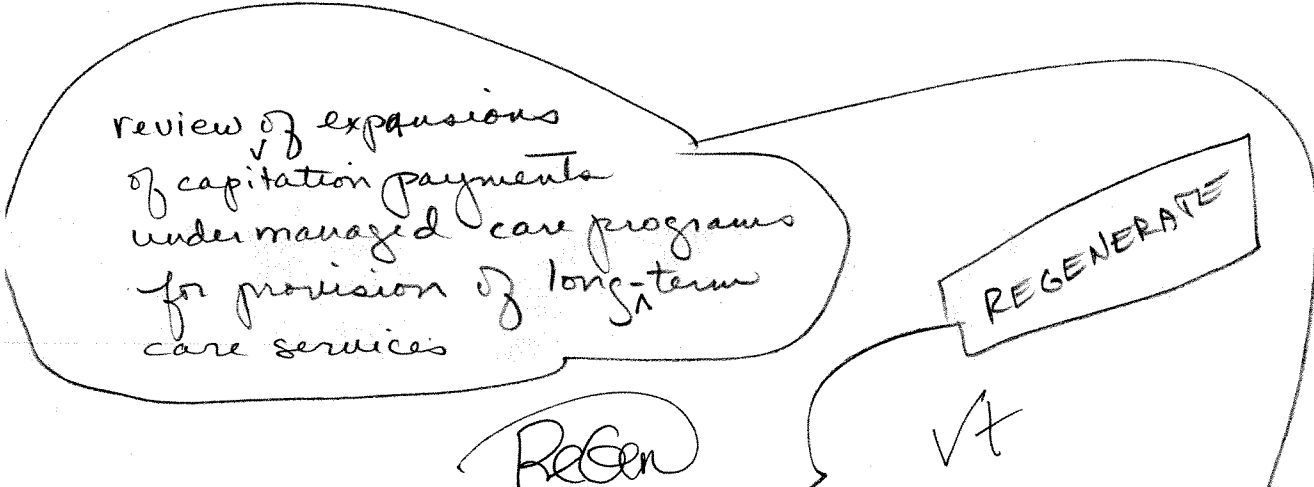 review of expansions
of capitation payments
under managed care programs
for provision of long-term
care services
REGENERATE
ReGen